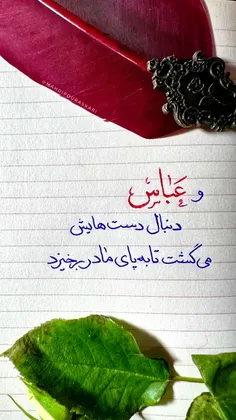 @MAHDIPOURASKARI
و عَبّاس
دنبال دست‌هایش
می‌گشت تا به پای مادر برخیزد